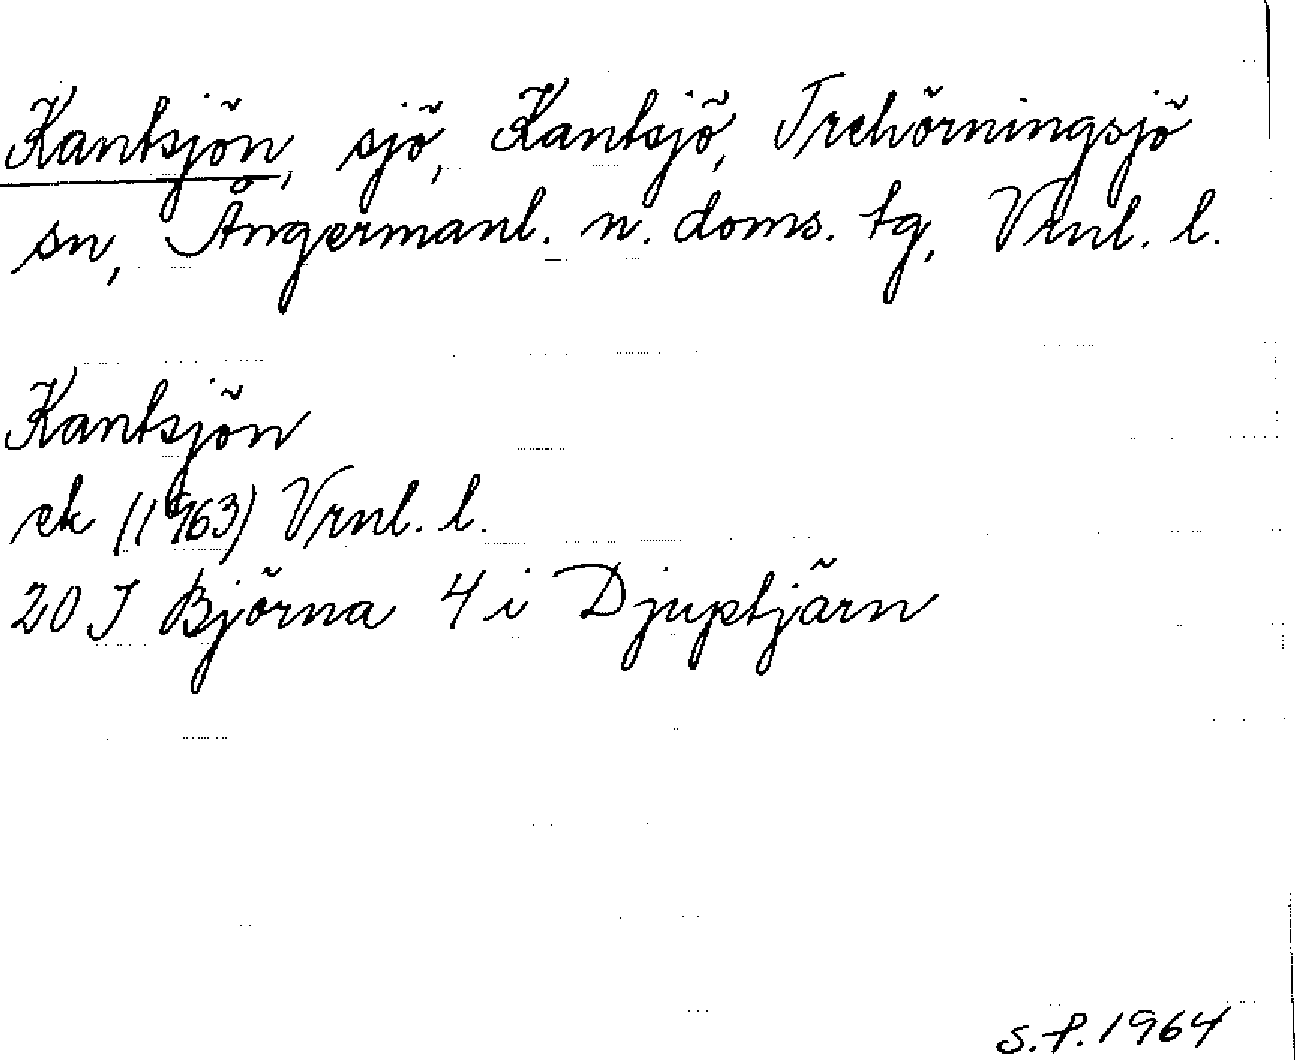 Kantsjön, sjö, Kantsjö, Trehörningsjö
sn, Ångermanl. n. doms. tg, Vrnl. l.
Kantsjön
ek (1963) Vrnl. l.
20 J Björna 4 i Djuptjärn
S.P. 1964